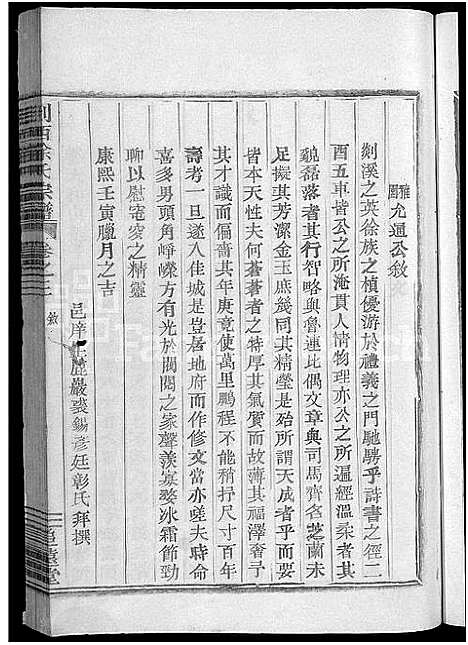 雅園允通公敘
剡溪之英徐族之楨優游於禮義之門馳騁乎詩書之徑二
酉五車皆公之所淹貫人情物理亦公之所遍經溫柔者其
貌磊落者其行智略與魯連比偶文章與司馬齊名芝蘭未
足擬其芳潔金玉庶幾同其精瑩是殆所謂天成者乎而要
皆本天性夫何蒼蒼者之特厚其氣質而故薄其福澤香予
其才識而偏嗇其年庚竟使萬里鵬程不能稍抒尺寸百年
壽考一旦遂入佳城是豈居地府而作修文當亦嗟夫時命
喜多男頭角崢嶸方有光於閥閱之家聲羨寡婺冰霜節勁
聊以慰窀穸之精靈
康熙壬寅臘月之吉
邑庠生嚴裘錫彥廷彰氏拜撰
剡西徐氏宗譜
卷之三
敘